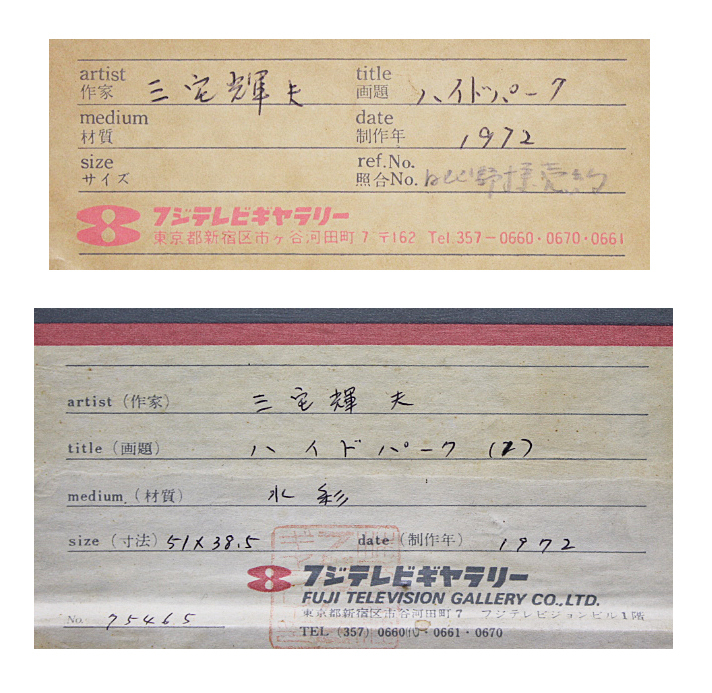 artist 三宅輝夫 title ハイドパーク
作家 画題
medium date
材質 制作年 1972
size ref.No.
サイズ 照合No. 日比野様売約
フジテレビギャラリー
東京都新宿区市ヶ谷河田町7 〒162 Tel 357-0660・0670・0661
artist (作家) 三宅輝夫
title (画題) ハイドパーク (2)
medium (材質) 水彩
size (寸法) 51×38.5 date (制作年) 1972
フジテレビギャラリー
FUJI TELEVISION GALLERY CO.,LTD.
東京都新宿区市谷河田町7 フジテレビジョンビル1階
No. 75465
TEL (357) 0660 ・0661・0670